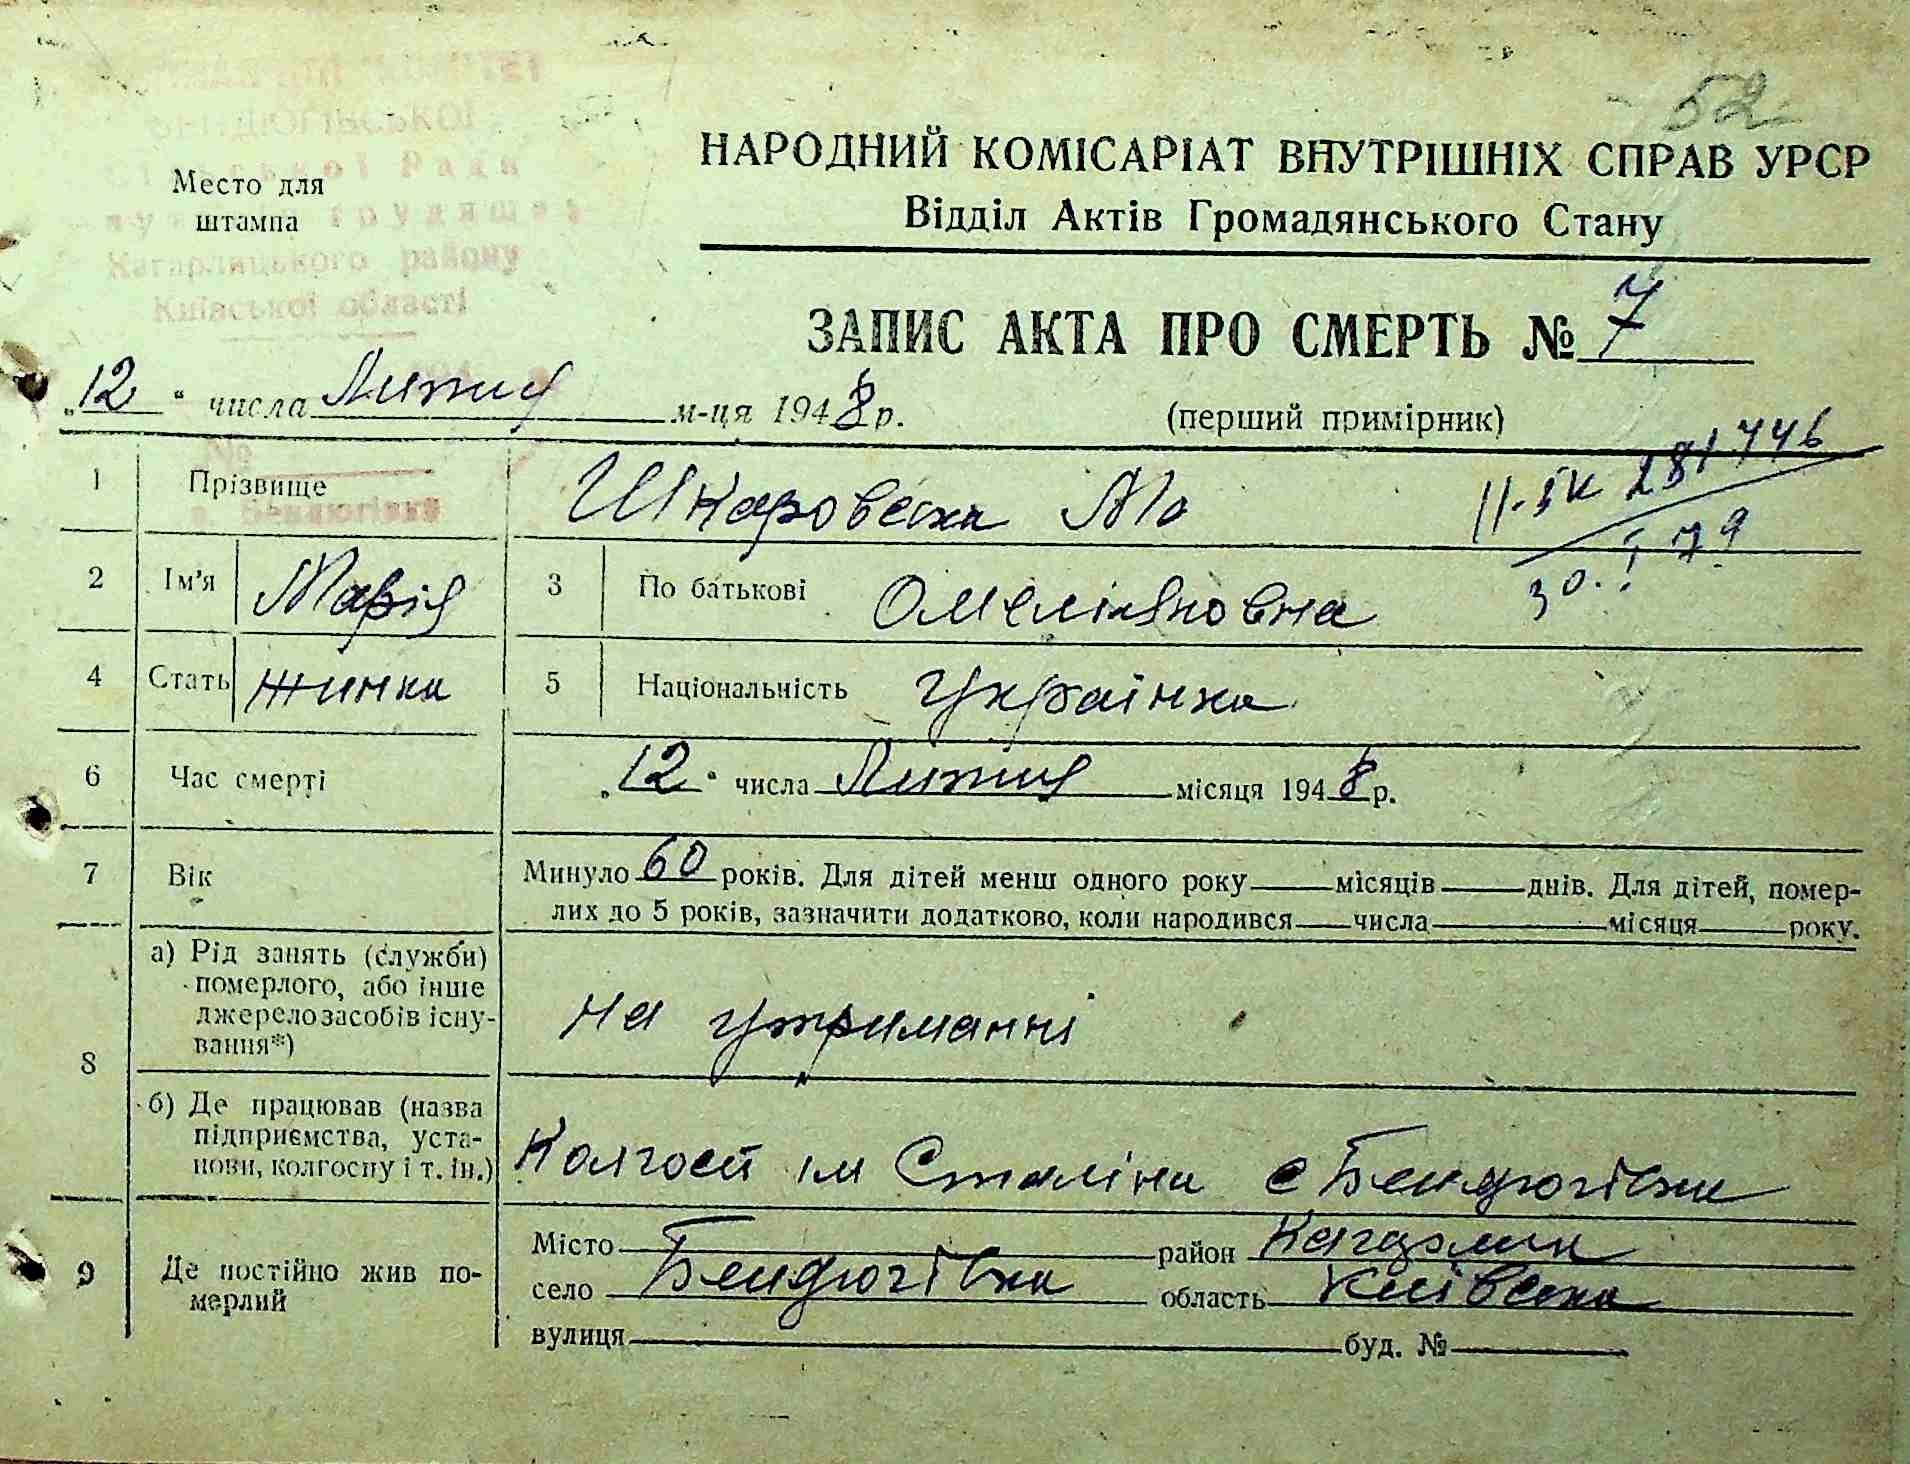 52
НАРОДНИЙ КОМІСАРІАТ ВНУТРІШНІХ СПРАВ УРСР
Відділ Актів Громадянського Стану
Место для
штампа
Сільської Ради
Кагарлицького району
Київської області
ЗАПИС АКТА ПРО СМЕРТЬ № 7
„12“ числа Липня м-ця 1948 р.
(перший примірник)
№
с. Бендюгівка
1 Прізвище Шкаровська
II-БК 281746
30.I 79
2 Ім'я Марія 3 По батькові Омеліяновна
4 Стать жинка 5 Національність Українка
6 Час смерті „12“ числа Липня місяця 1948 р.
7 Вік Минуло 60 років. Для дітей менш одного року місяців днів. Для дітей, помер-
лих до 5 років, зазначити додатково, коли народився числа місяця року.
8 а) Рід занять (служби)
померлого, або інше
джерело засобів існу-
вання*)
на утриманні
б) Де працював (назва
підприємства, уста-
нови, колгоспу і т. ін.)
Колгосп ім Сталіна с Бендюгівка
9 Де постійно жив по-
мерлий
Місто район Кагарлик
село Бендюгівка область Київська
вулиця буд. №